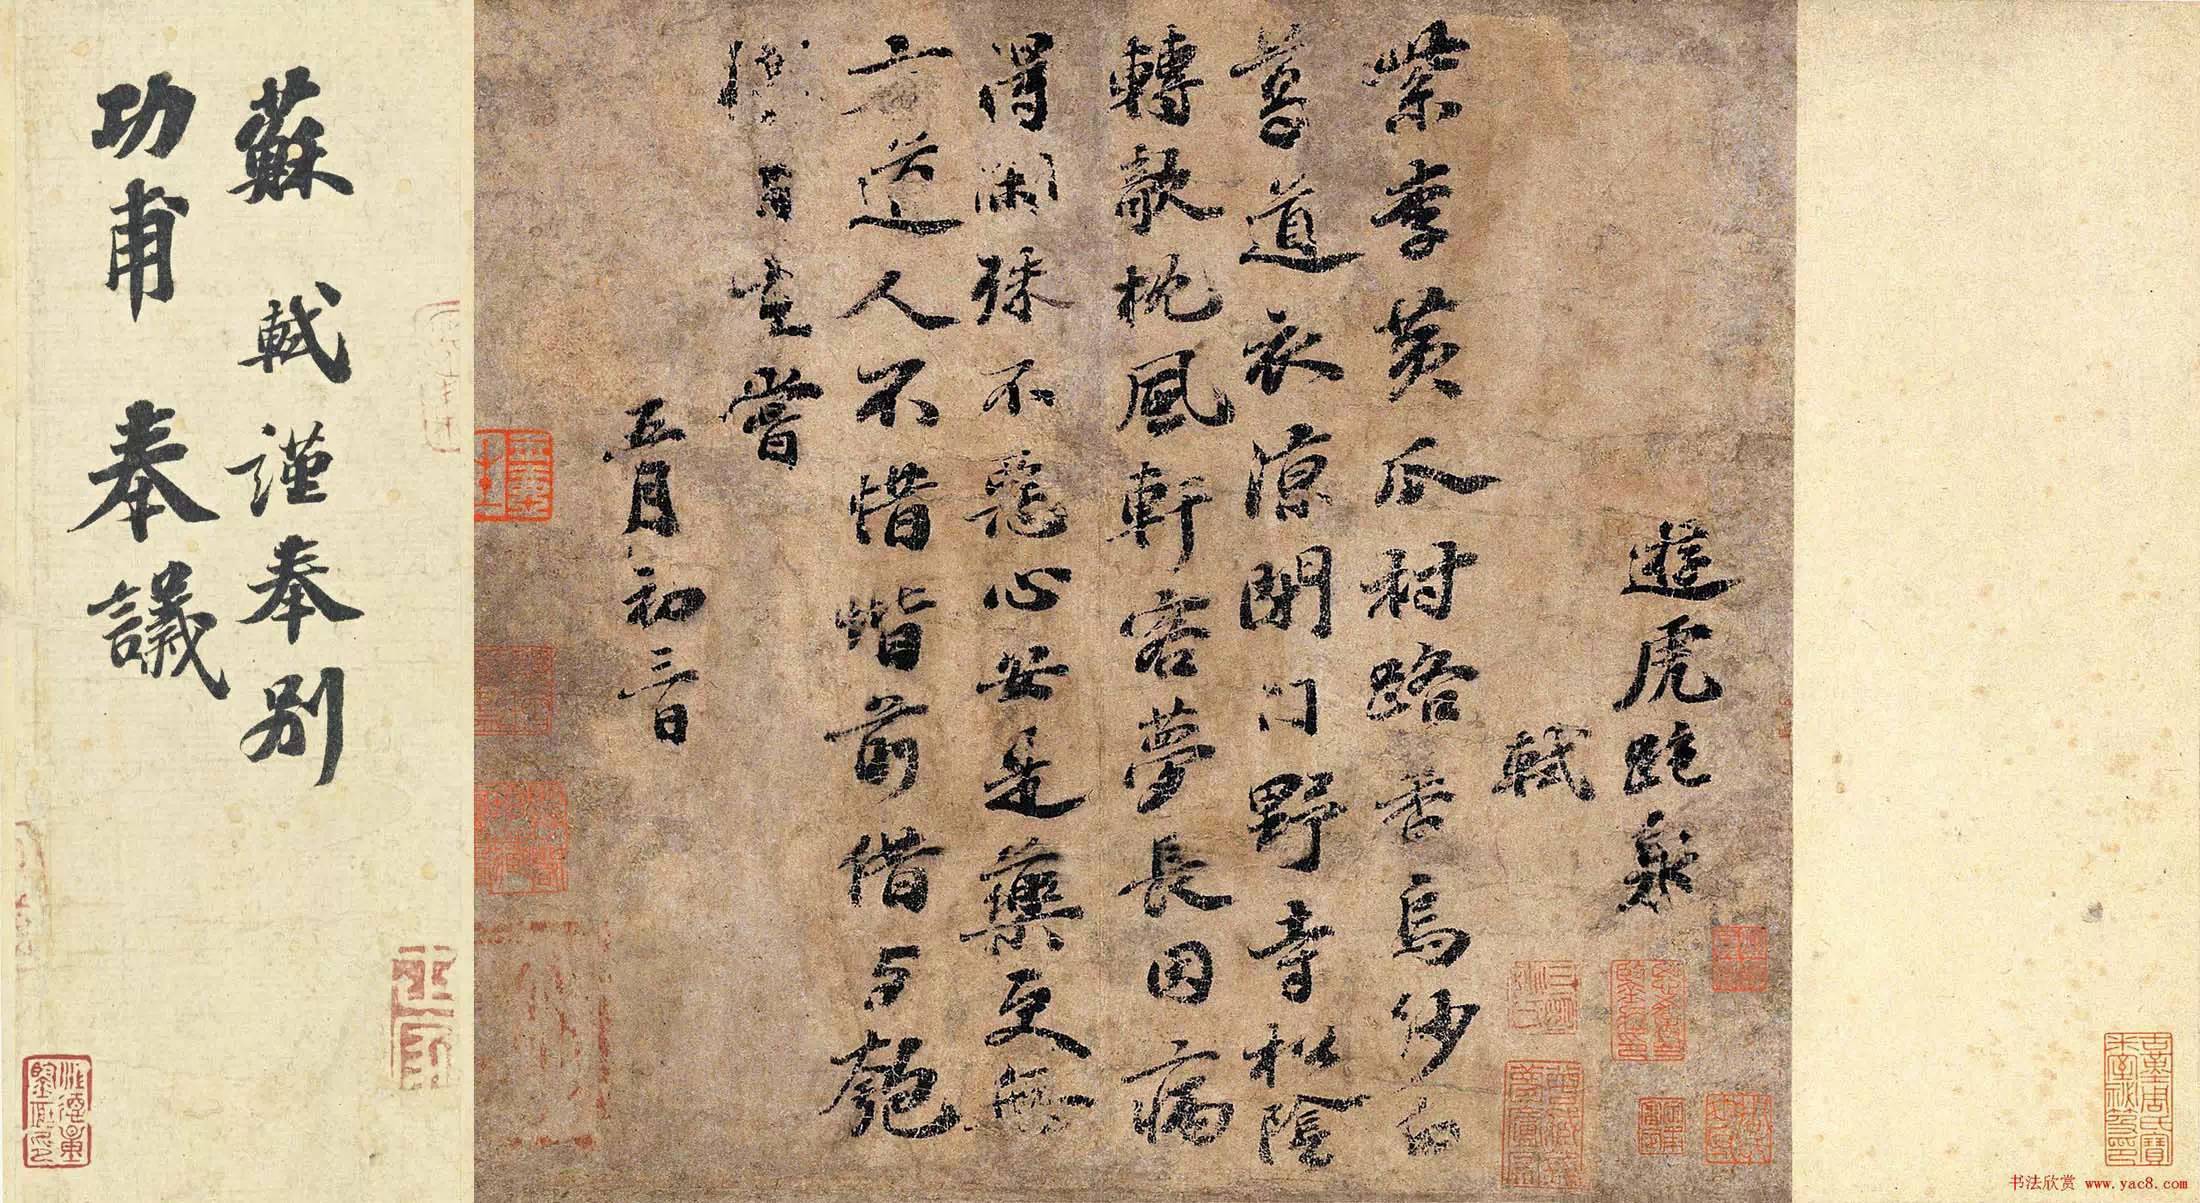 遊虎跑泉
軾
紫李黃瓜村路香烏紗白
葛道衣涼閉門野寺松陰
轉欹枕風軒客夢長因病
得閑殊不惡心安是藥更無
方道人不惜堦前借与匏
樽自在嘗
五月初三日
蘇軾謹奉別
功甫奉議
书法欣赏 www.yac8.com